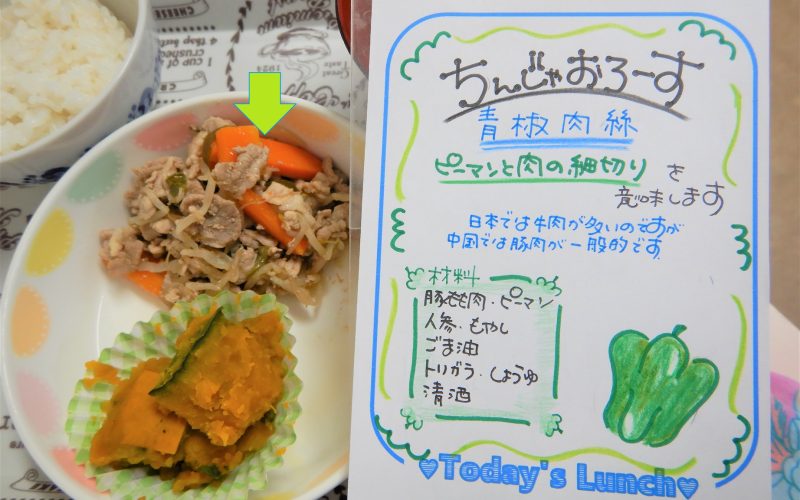 CHEESE
1 CUP of
4 tbsp but
crushed
1924
Great
Taste
ちんじゃおろーす
青椒肉絲
ピーマンと肉の細切り を
意味します
日本では牛肉が多いのですが
中国では豚肉が一般的です。
材料
豚もも肉・ピーマン
人参・もやし
ごま油
トリガラ・しょうゆ
清酒
Today's Lunch